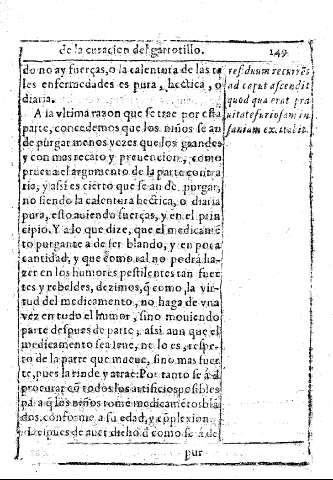 de la curacion del garrotillo.
149
do no ay fuerças, o la calentura de las ta
les enfermedades es pura, hectica, o
diaria.
A la vltima razon que se trae por esta
parte, concedemos que los niños se an
de purgar menos vezes que los grandes
y con mos recato y preuencion, como
prueua el argumento de la parte contra
ria, y assi es cierto que se an de purgar,
no siendo la calentura hectica, o diaria
pura, esto auiendo fuerças, y en el prin
cipio. Y a lo que dize, que el medicamē
to purgante a de ser blando, y en poca
cantidad, y que como tal no podra ha-
zer en los humores pestilentes tan fuer
tes y rebeldes, dezimos, q̃ como la vir-
tud del medicamento, no haga de vna
vez en todo el humor, sino mouiendo
parte despues de parte, assi aun que el
medicamento sea leue, no lo es, respe-
to de la parte que mueue, sino mas fuer
te, pues la rinde y atrae: Por tanto se a d̃
procurar cō todos los artificios posibles
para q̃ los niños tomē medicamētos blā
dos, conforme a su edad, y cōplexion.
Despues de auer dicho q̃ como se a de
pur
residuum recurrēs
ad caput ascendit
quod qua erat pra
uitate furiosam in
saniam exitabit.